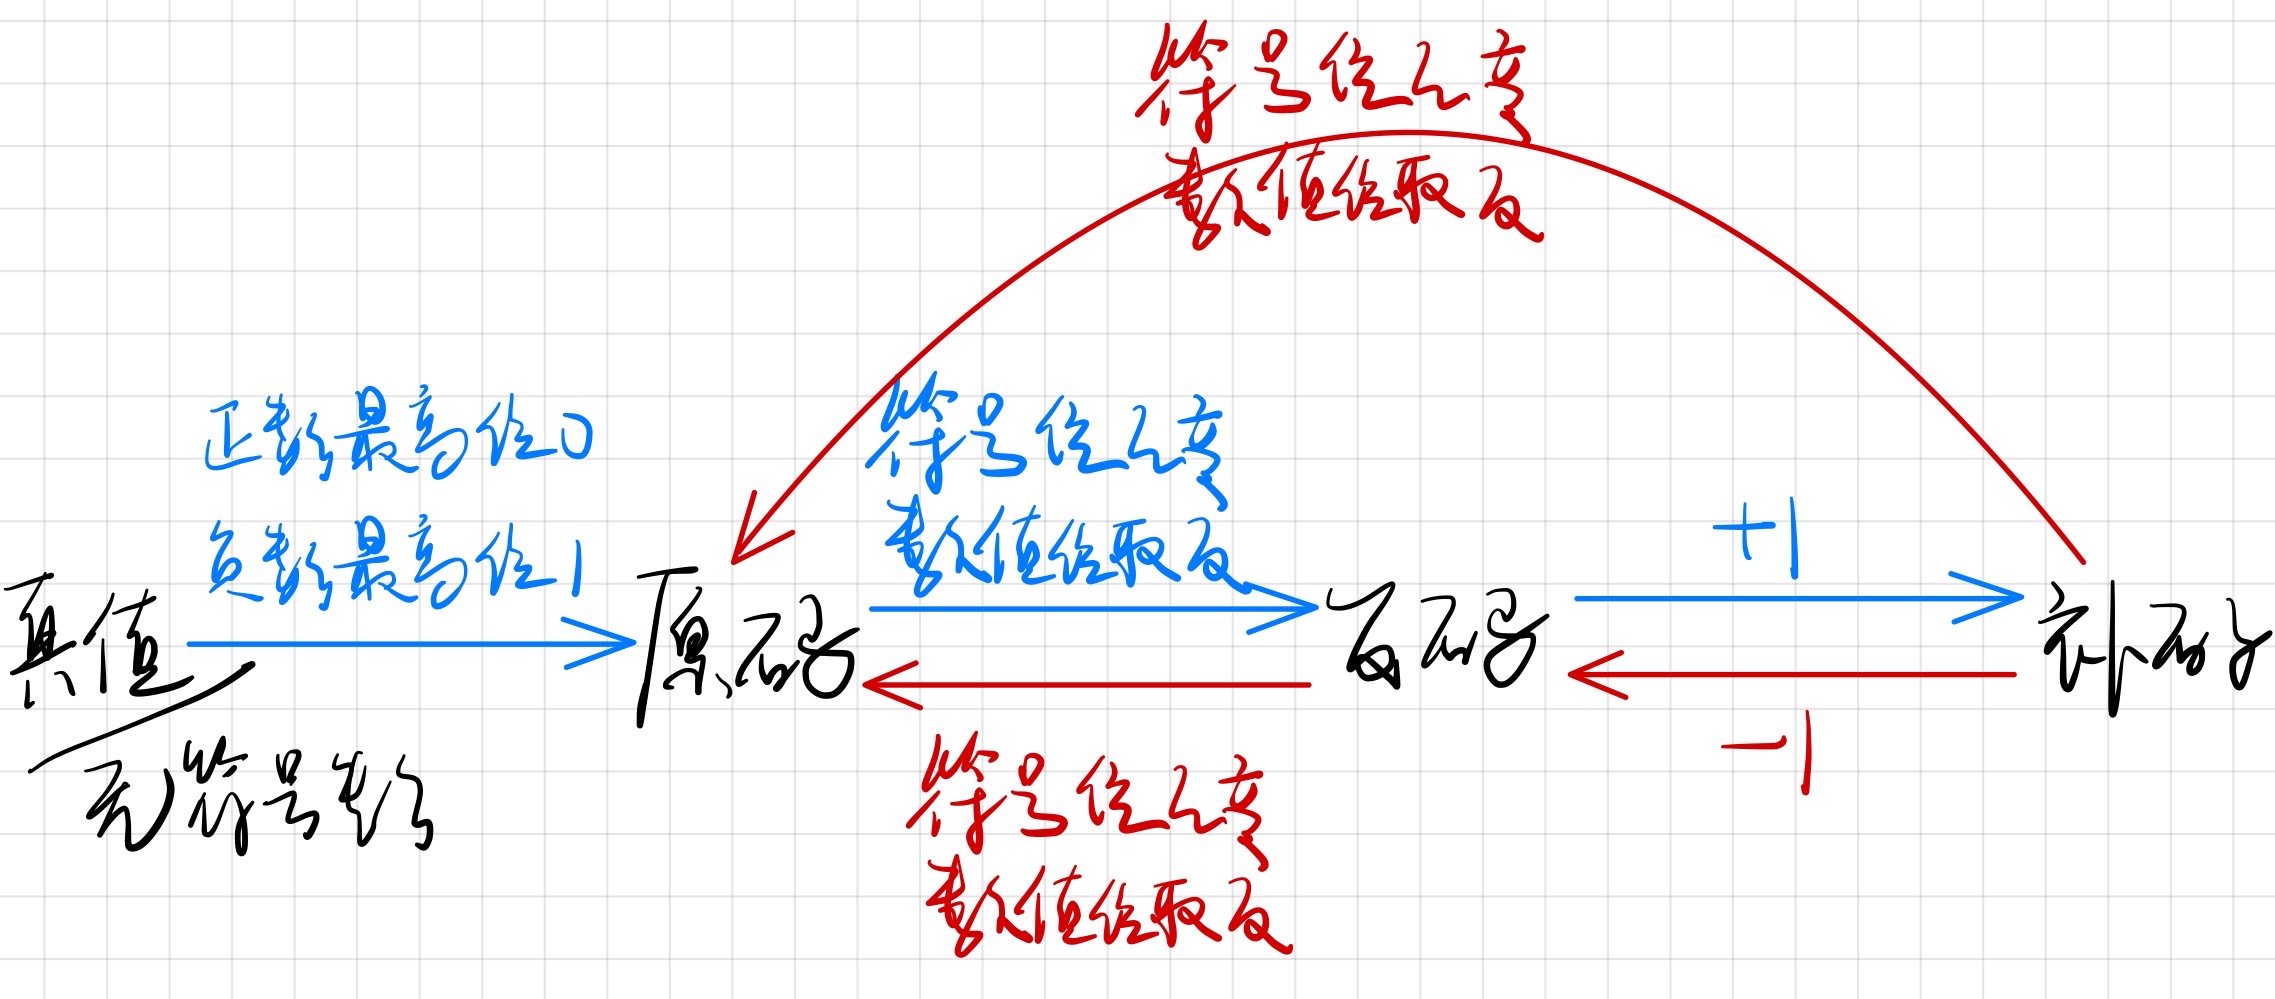 符号位不变
数值位取反
正数最高位0
负数最高位1
符号位不变
数值位取反
+1
真值
原码
反码
补码
无符号数
-1
符号位不变
数值位取反